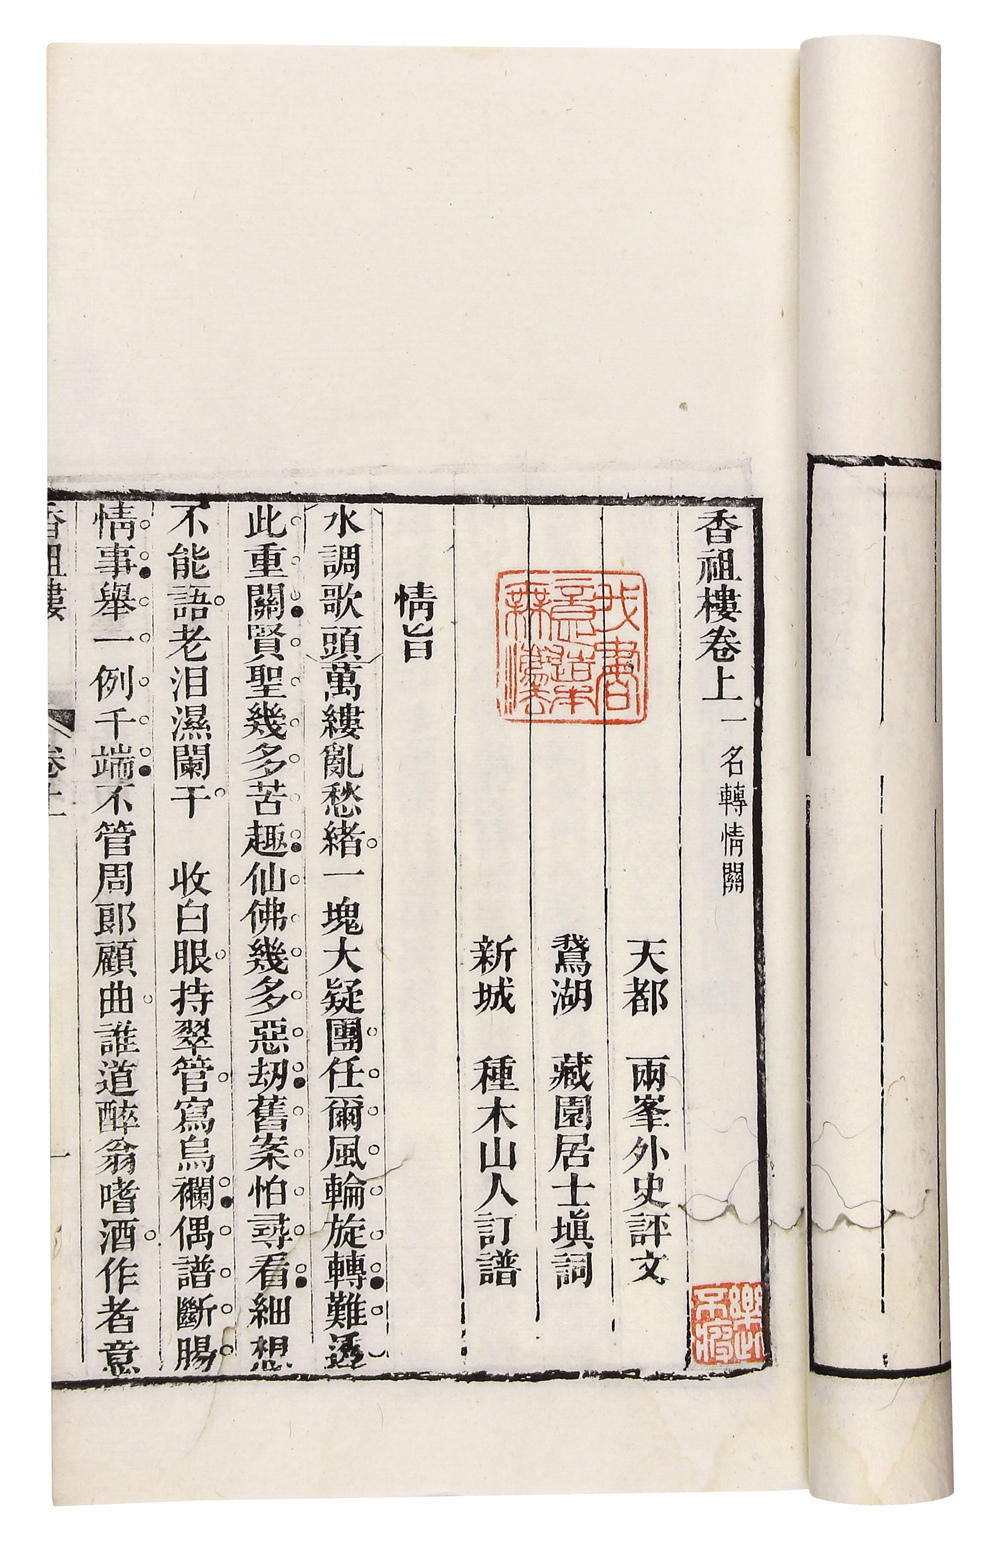 香祖樓卷上 一名轉情關
天都 兩峯外史評文
鵞湖 藏園居士塡詞
新城 種木山人訂譜
情旨
水調歌頭萬縷亂愁緒一塊大疑團任爾風輪旋轉難透
此重關賢聖幾多苦趣仙佛幾多惡刼舊案怕尋看細想
不能語老淚濕闌干 收白眼持翠管寫烏襴偶譜斷腸
情事舉一例千端不管周郞顧曲誰道醉翁嗜酒作者意
香祖樓 卷上 一